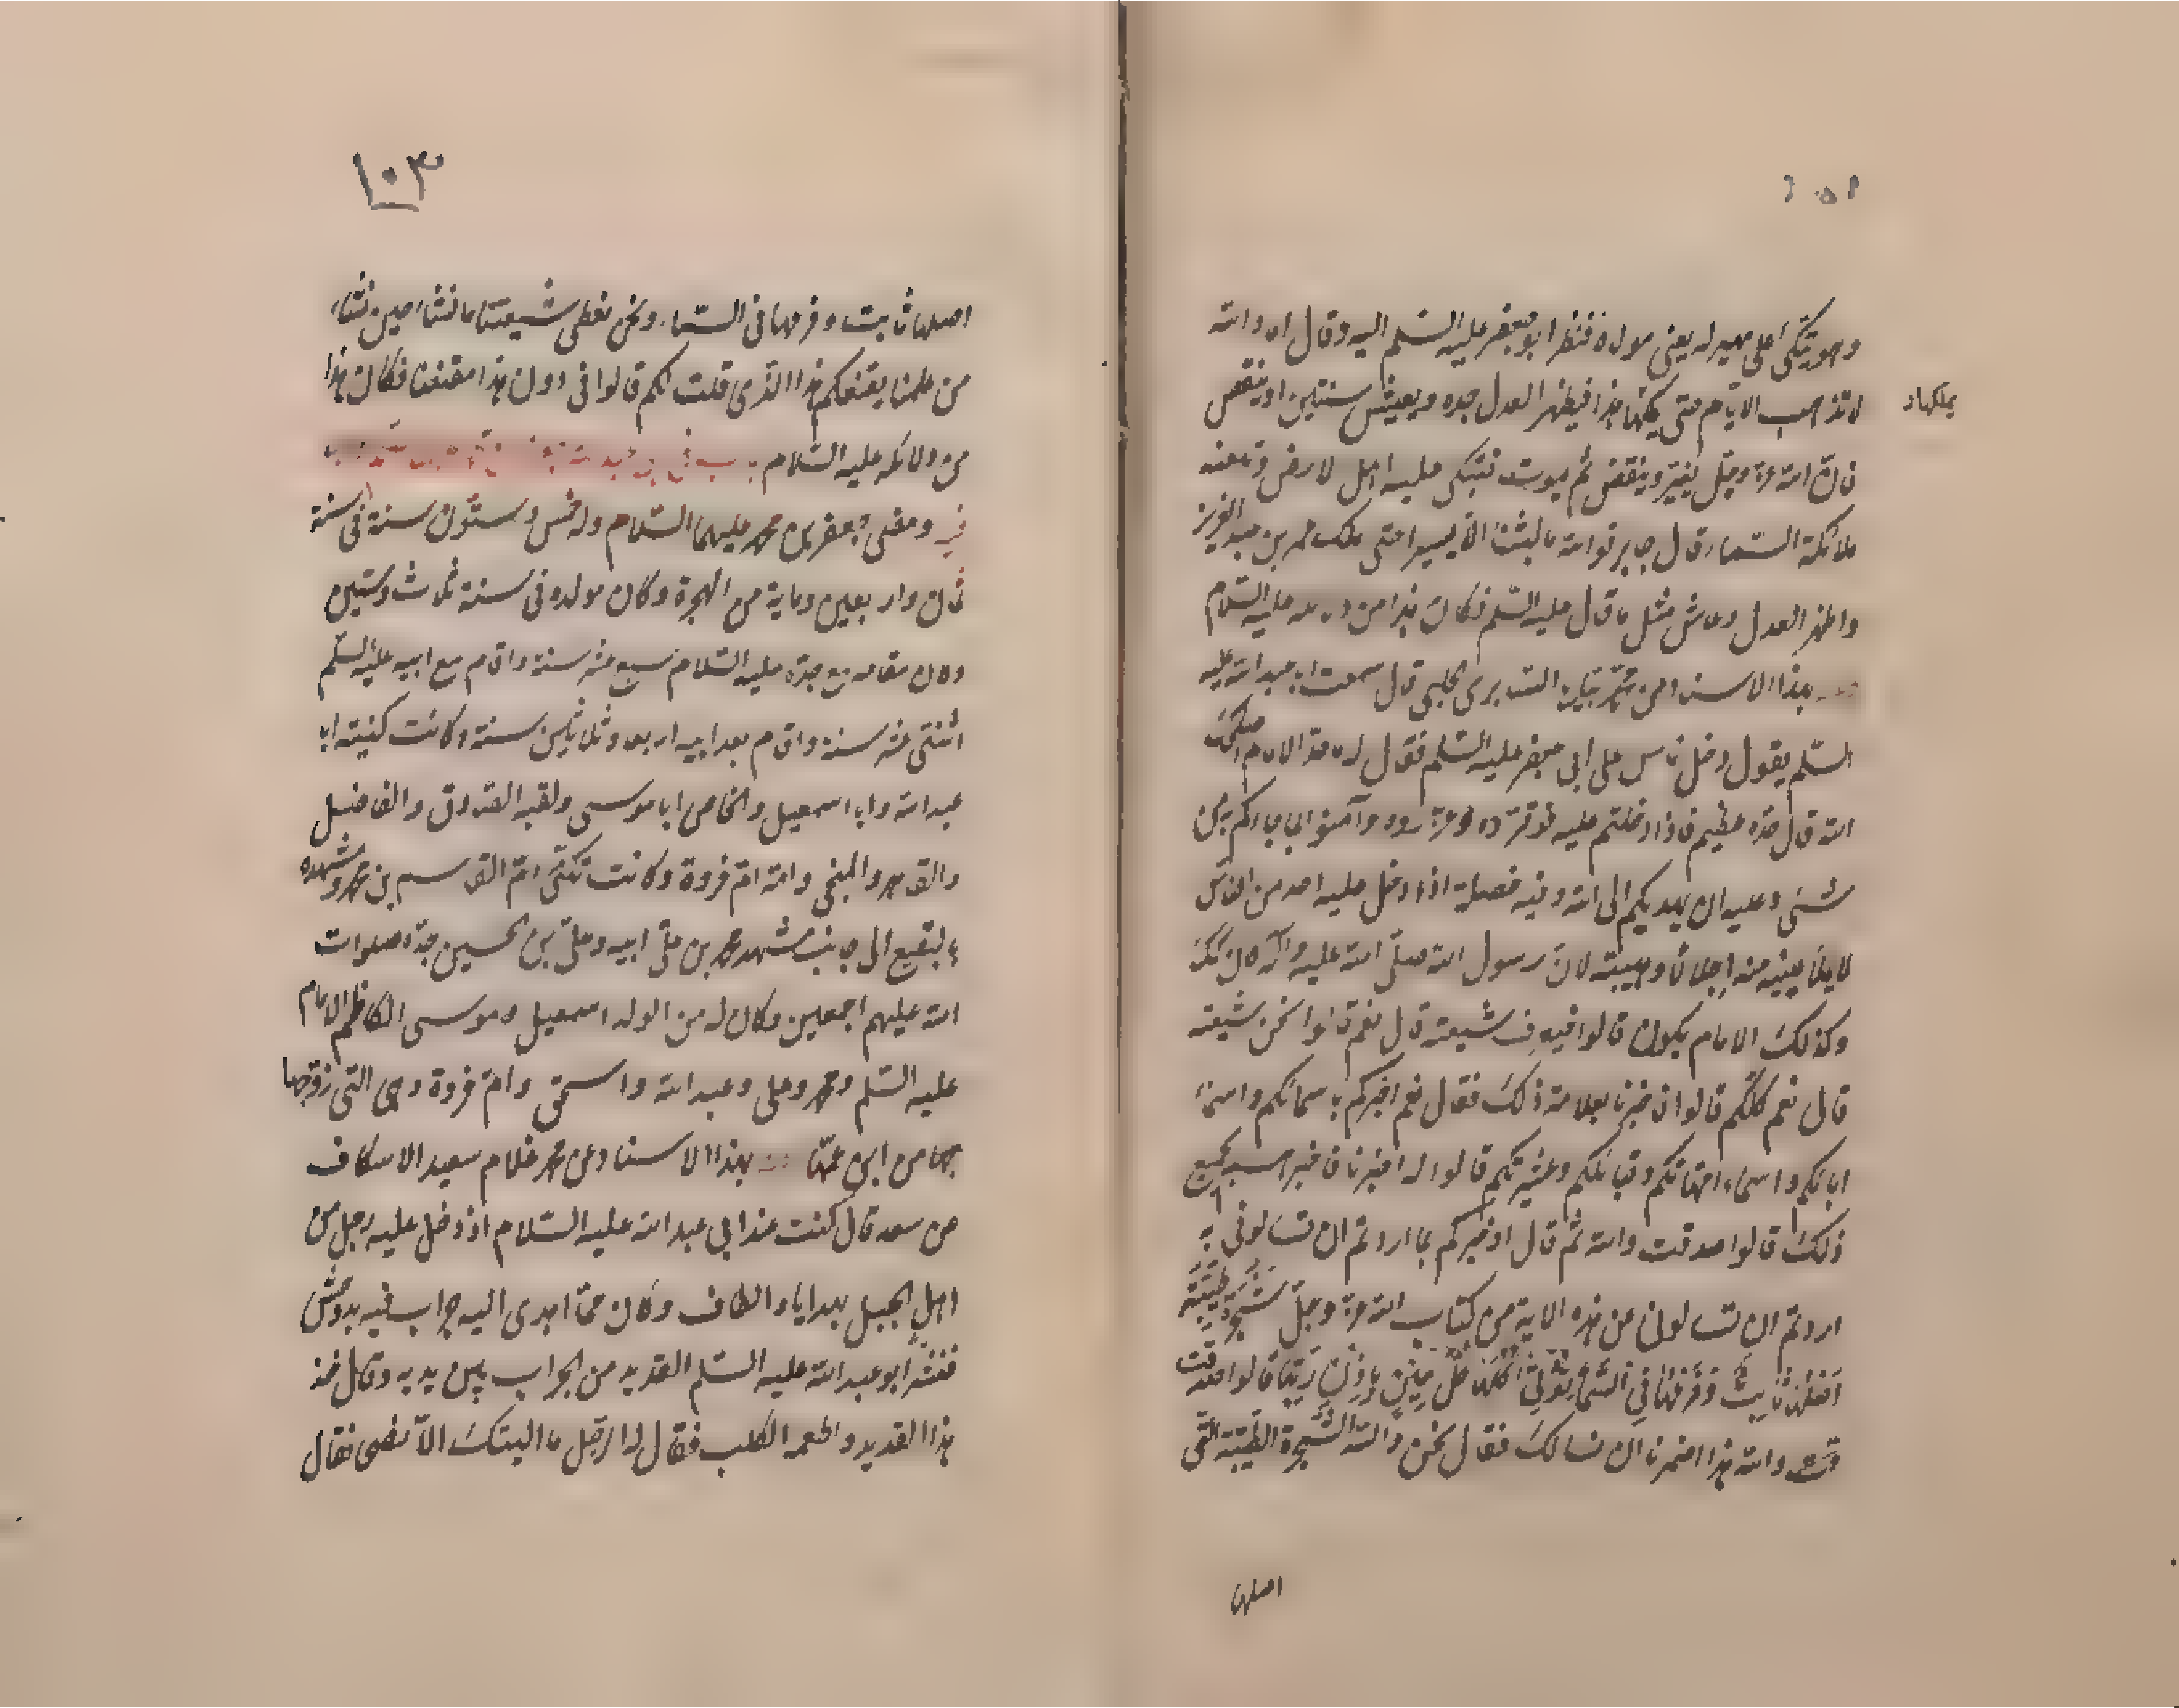 وهو يتكئ على مهير له يعني مولاه فنظر ابو جعفر عليه السلم اليه وقال اه والله
لا تذهب الايام حتى يملكها هذا فيظهر العدل جهده ويعيش سنتين او ينقص
يملكها
فان الله عز وجل يغير وينقض ثم يموت فتبكى عليه اهل الارض وتلعنه
ملائكة السماء قال جابر فوالله ما لبثنا الا يسيرا حتى ملك عمر بن عبد العزيز
واظهر العدل وعاش مثل ما قال عليه السلم فكان هذا من عليه السلام
بهذا الاسناد عن الحلبي قال سمعت ابا عبد الله عليه
السلم يقول دخل ناس على ابي جعفر عليه السلم فقالوا له ما حد الامام اصلحك
الله قال حده عظيم فاذا دخلتم عليه فوقروه وعزروه وآمنوا بما جاءكم من
شئ وعليه ان يهديكم الى الله وفيه خصلة اذا دخل عليه احد من الناس
لا يملأ عينيه منه اجلالا وهيبة لان رسول الله صلى الله عليه وآله كان كذلك
وكذلك الامام يكون قالوا فيعرف شيعته قال نعم قالوا نحن شيعته
قال نعم كلكم قالوا فاخبرنا بعلامة ذلك فقال نعم اخبركم باسمائكم واسماء
ابائكم واسماء امهاتكم وقبائلكم وعشيرتكم قالوا له اخبرنا فاخبرهم بجميع
ذلك قالوا صدقت والله ثم قال اوخبركم بما اردتم ان تسالوني به
اردتم ان تسالوني عن هذه الاية من كتاب الله عز وجل شَجَرَة طَيِّبَة
أَصْلُهَا ثَابِتٌ وَفَرْعُهَا فِي السَّمَاءِ تُؤْتِي أُكُلَهَا كُلَّ حِينٍ بِإِذْنِ رَبِّهَا قالوا صدقت
والله هذا اضمرنا ان نسالك فقال نحن والله الشجرة الطيبة التي
اصلها
١٠٣
اصلها ثابت وفرعها في السماء ونحن نعطى شيعتنا ما نشاء حين نشاء
من علمنا يقنعكم هذا الذي قلت لكم قالوا في دون هذا مقنعنا فكان هذا
من دلائله عليه السلام
ومضى جعفر بن محمد عليهما السلام وله خمس وستون سنة في سنة
ثمان واربعين وماية من الهجرة وكان مولده في سنة ثلاث وستين
وكان مقامه مع جده عليه السلام سبع عشر سنة واقام مع ابيه عليه السلم
اثنتى عشر سنة واقام بعد ابيه اربعا وثلاثين سنة وكانت كنيته ابا
عبد الله وابا اسمعيل والخاص ابا موسى ولقبه الصادق والفاضل
والقاهر والمنجى وامه ام فروة وكانت تكنى ام القاسم بن محمد ومشهده
بالبقيع الى جانب مشهد محمد بن علي ابيه وعلي بن الحسين جده صلوات
الله عليهم اجمعين وكان له من الولد اسمعيل وموسى الكاظم الامام
عليه السلم ومحمد وعلى وعبد الله واسحق وام فروة وهي التي زوجها
بها من ابن عمها بهذا الاسناد عن محمد غلام سعيد الاسكاف
عن سعد قال كنت عند ابي عبد الله عليه السلام اذ دخل عليه رجل من
اهل الجبل بهدايا والطاف وكان مما اهدى اليه جراب فيه
فنثر ابو عبد الله عليه السلم القديد من الجراب بين يديه وقال خذ
هذا القديد واطعمه الكلب فقال له الرجل ما اليتك الا نصحا فقال